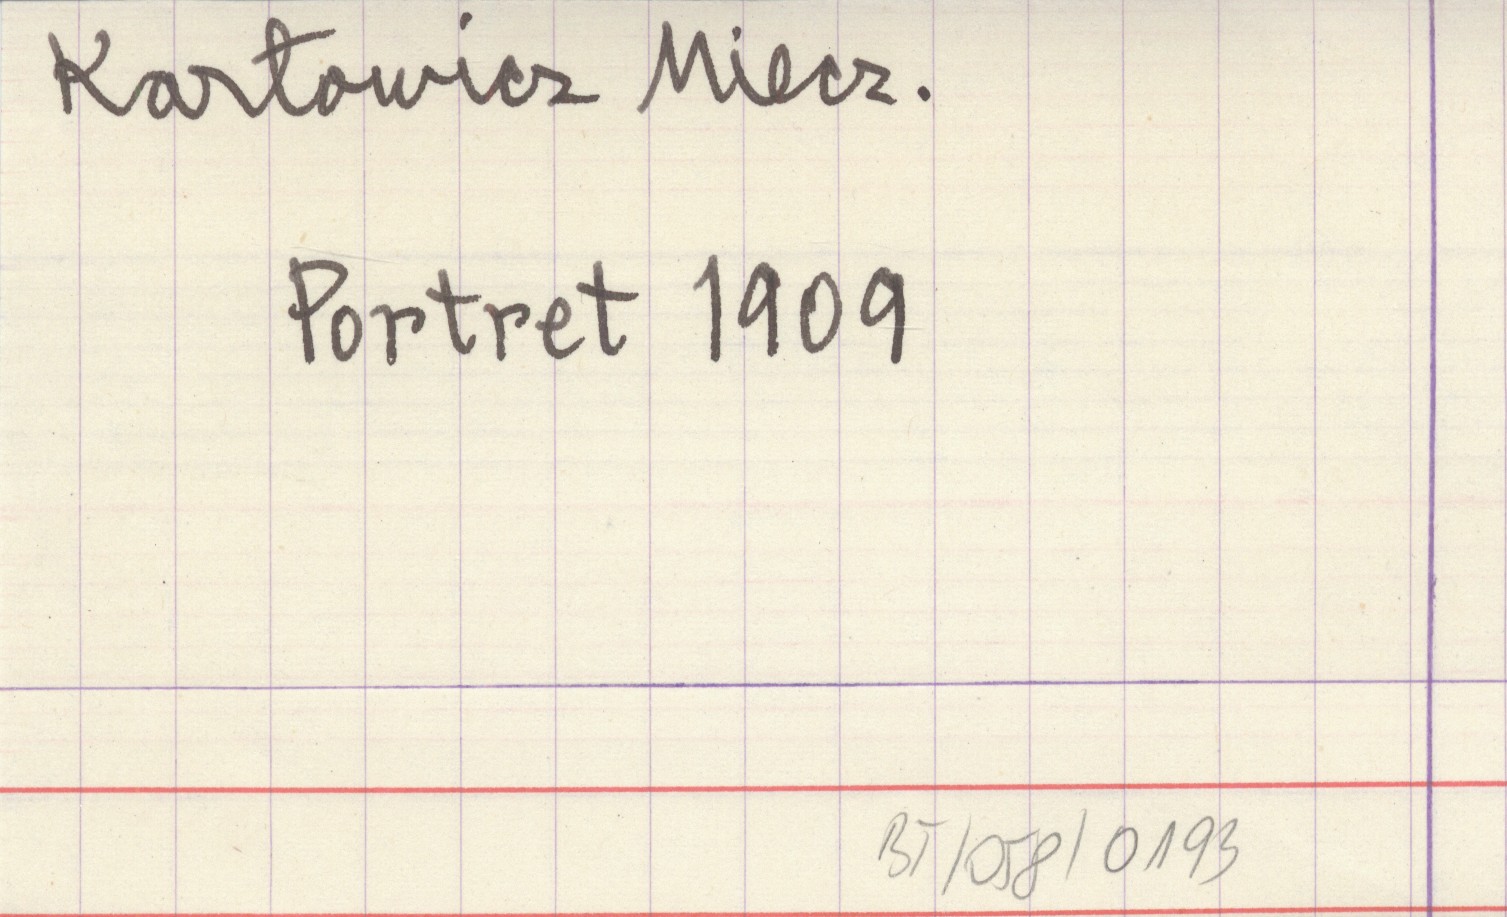 Karłowicz Miecz.
Portret 1909
BT/058/0193